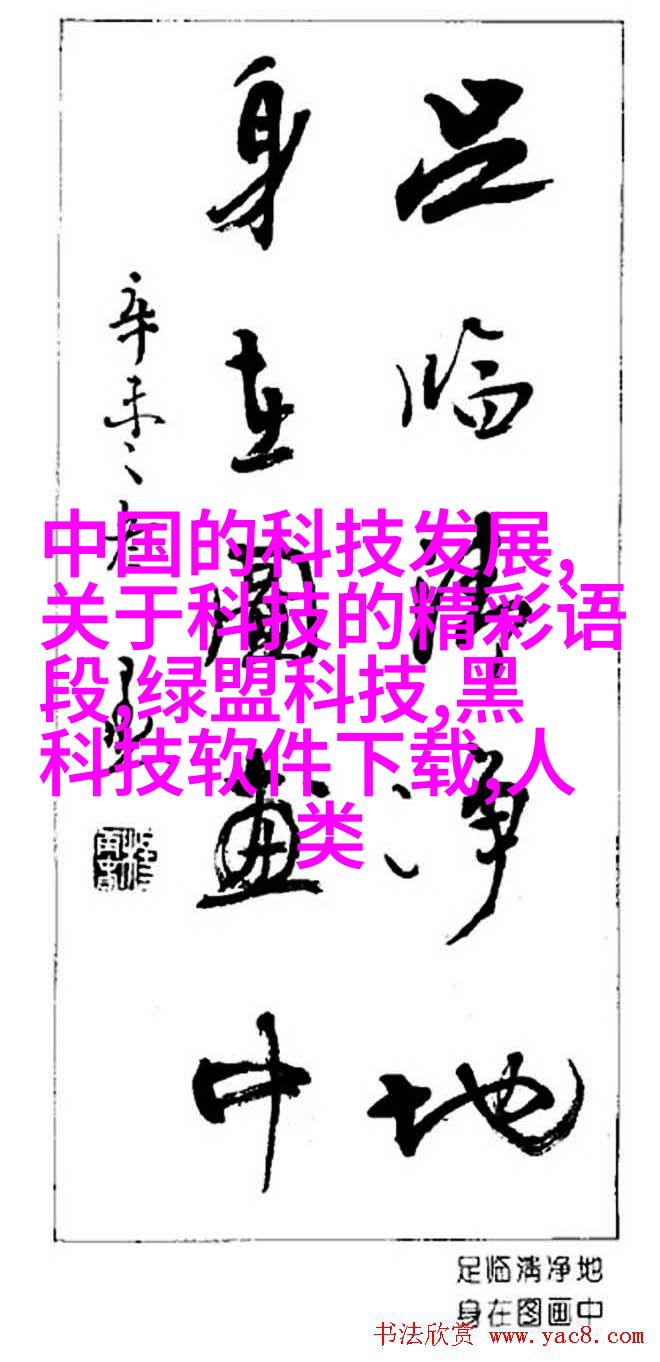 足临清净地
身在图画中
辛未之春
中国的科技发展,
关于科技的精彩语
段,绿盟科技,黑
科技软件下载,人
类
足临清净地
身在图画中
书法欣赏 www.yac8.com